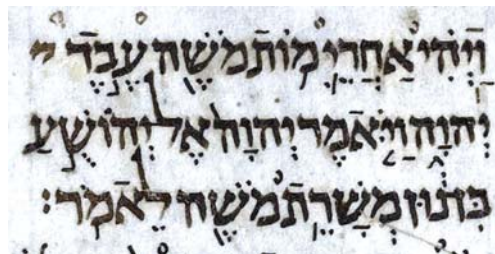 וַיְהִי אַחֲרֵי מוֹת מֹשֶׁה עֶבֶד
יְהוָה וַיֹּאמֶר יְהוָה אֶל־יְהוֹשֻׁעַ
בִּן נוּן מְשָׁרֵת מֹשֶׁה לֵאמֹר׃